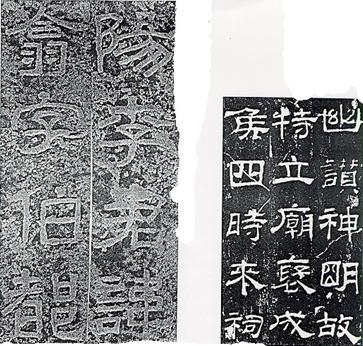 幽讚神明故
特立廟褒成
侯四時來祠
陽李君諱
翕字伯都